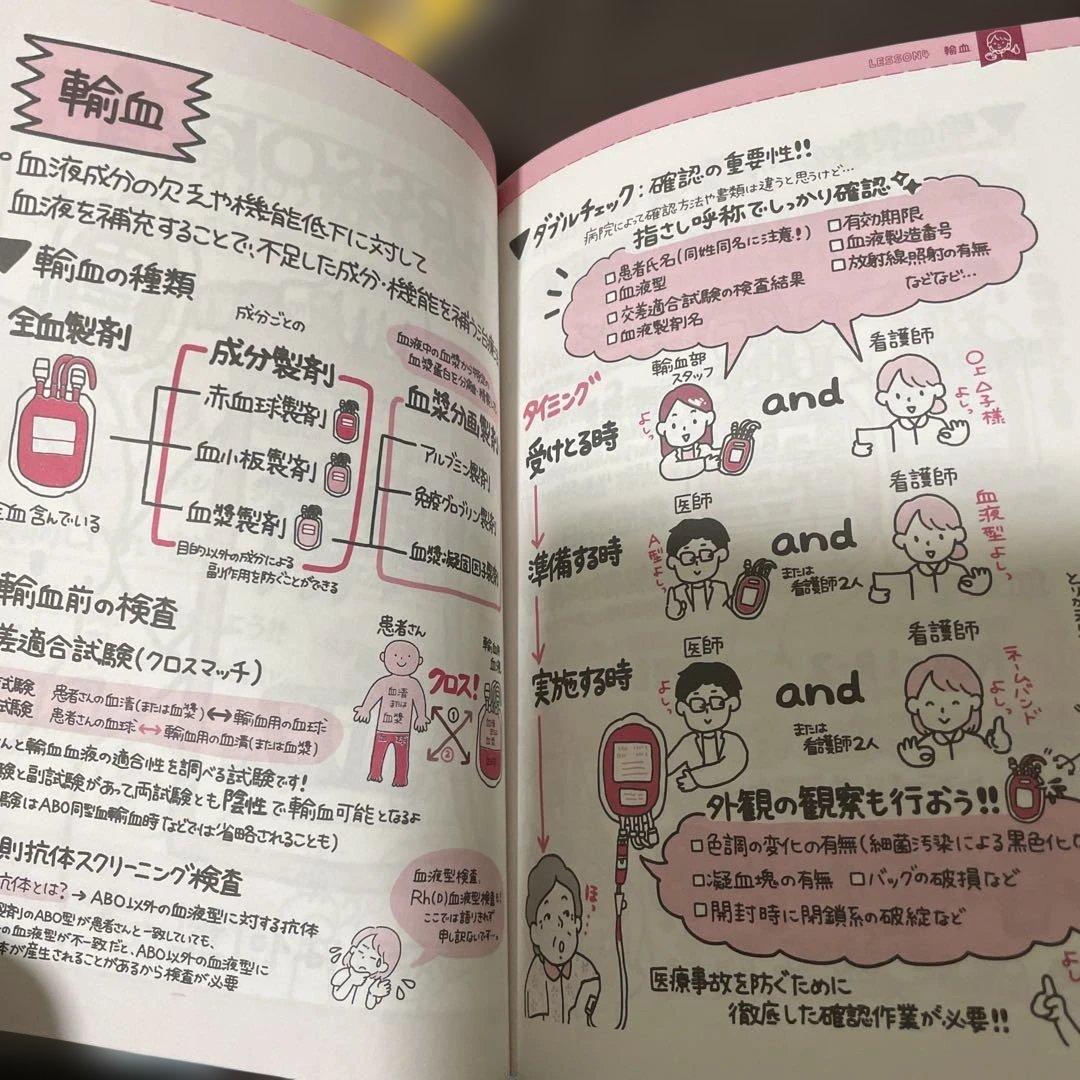 輸血
血液成分の欠乏や機能低下に対して
血液を補充することで、不足した成分・機能を補う治療
輸血の種類
全血製剤
含んでいる
成分ごとの
成分製剤
赤血球製剤
血小板製剤
血漿製剤
目的以外の成分による
副作用を防ぐことができる
血液中の血漿から
血漿蛋白を
血漿分画製
アルブミン製剤
免疫グロブリン製剤
血漿・凝固因子製剤
輸血前の検査
差適合試験(クロスマッチ)
試験 患者さんの血漬(または血漿)↔輸血用の血球
試験 患者さんの血球↔輸血用の血漬(または血漿)
んと輸血血液の適合性を調べる試験です!
験と副試験があって、両試験とも陰性で輸血可能となるよ
験はABO同型血輸血時などでは省略されることも)
患者さん
血漬
または
血漿
血球
クロス!
①
②
則抗体スクリーニング検査
抗体とは?→ABO以外の血液型に対する抗体
製剤のABO型が患者さんと一致していても、
の血液型が不一致だと、ABO以外の血液型に
体が産生されることがあるから検査が必要
血液型検査、
Rh(D)血液型検査
ここでは語りきれず
申し訳ないです…。
LESSON4 輸血
ダブルチェック:確認の重要性!!
病院によって確認方法や書類は違うと思うけど…
指さし呼称でしっかり確認
□患者氏名(同姓同名に注意!)
□血液型
□交差適合試験の検査結果
□血液製剤名
□有効期限
□血液製造番号
□放射線照射の有無
などなど…
タイミング
受けとる時
輸血部
スタッフ
よしっ
and
看護師
○△子様
よしっ
準備する時
医師
A型よしっ
and
または
看護師2人
看護師
血液型よしっ
実施する時
医師
よしっ
and
または
看護師2人
看護師
ネームバンド
よしっ
外観の観察も行おう!!
□色調の変化の有無(細菌汚染による黒色化
□凝血塊の有無 □バッグの破損など
□開封時に閉鎖系の破綻など
ほっ
医療事故を防ぐために
徹底した確認作業が必要!!
よし